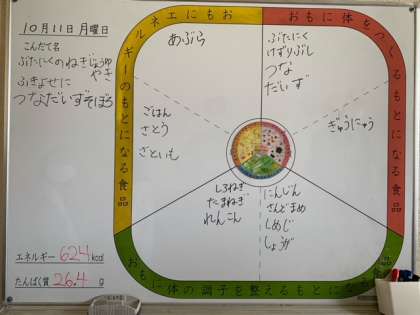 10月11日 月曜日
こんだて名
ぶたにくのねぎじょうゆ
やき
ふきよせに
つなだいずそぼろ
エネルギー 624 kcal
たんぱく質 26.4 g
おもにエネルギーのもとになる食品
あぶら
ごはん
さとう
さといも
おもに体をつくるもとになる食品
ぶたにく
けずりぶし
つな
だいず
ぎゅうにゅう
しろねぎ
たまねぎ
れんこん
にんじん
さんどまめ
しめじ
しょうが
おもに体の調子を整えるもとになる食品